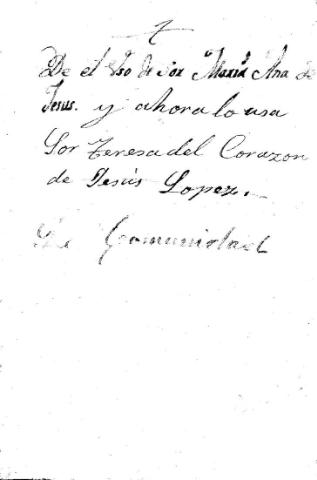 De el Uso de Sor María Ana de
Jesus. y ahora lo usa
Sor Teresa del Corazon
de Jesús Lopez.
Comunidad